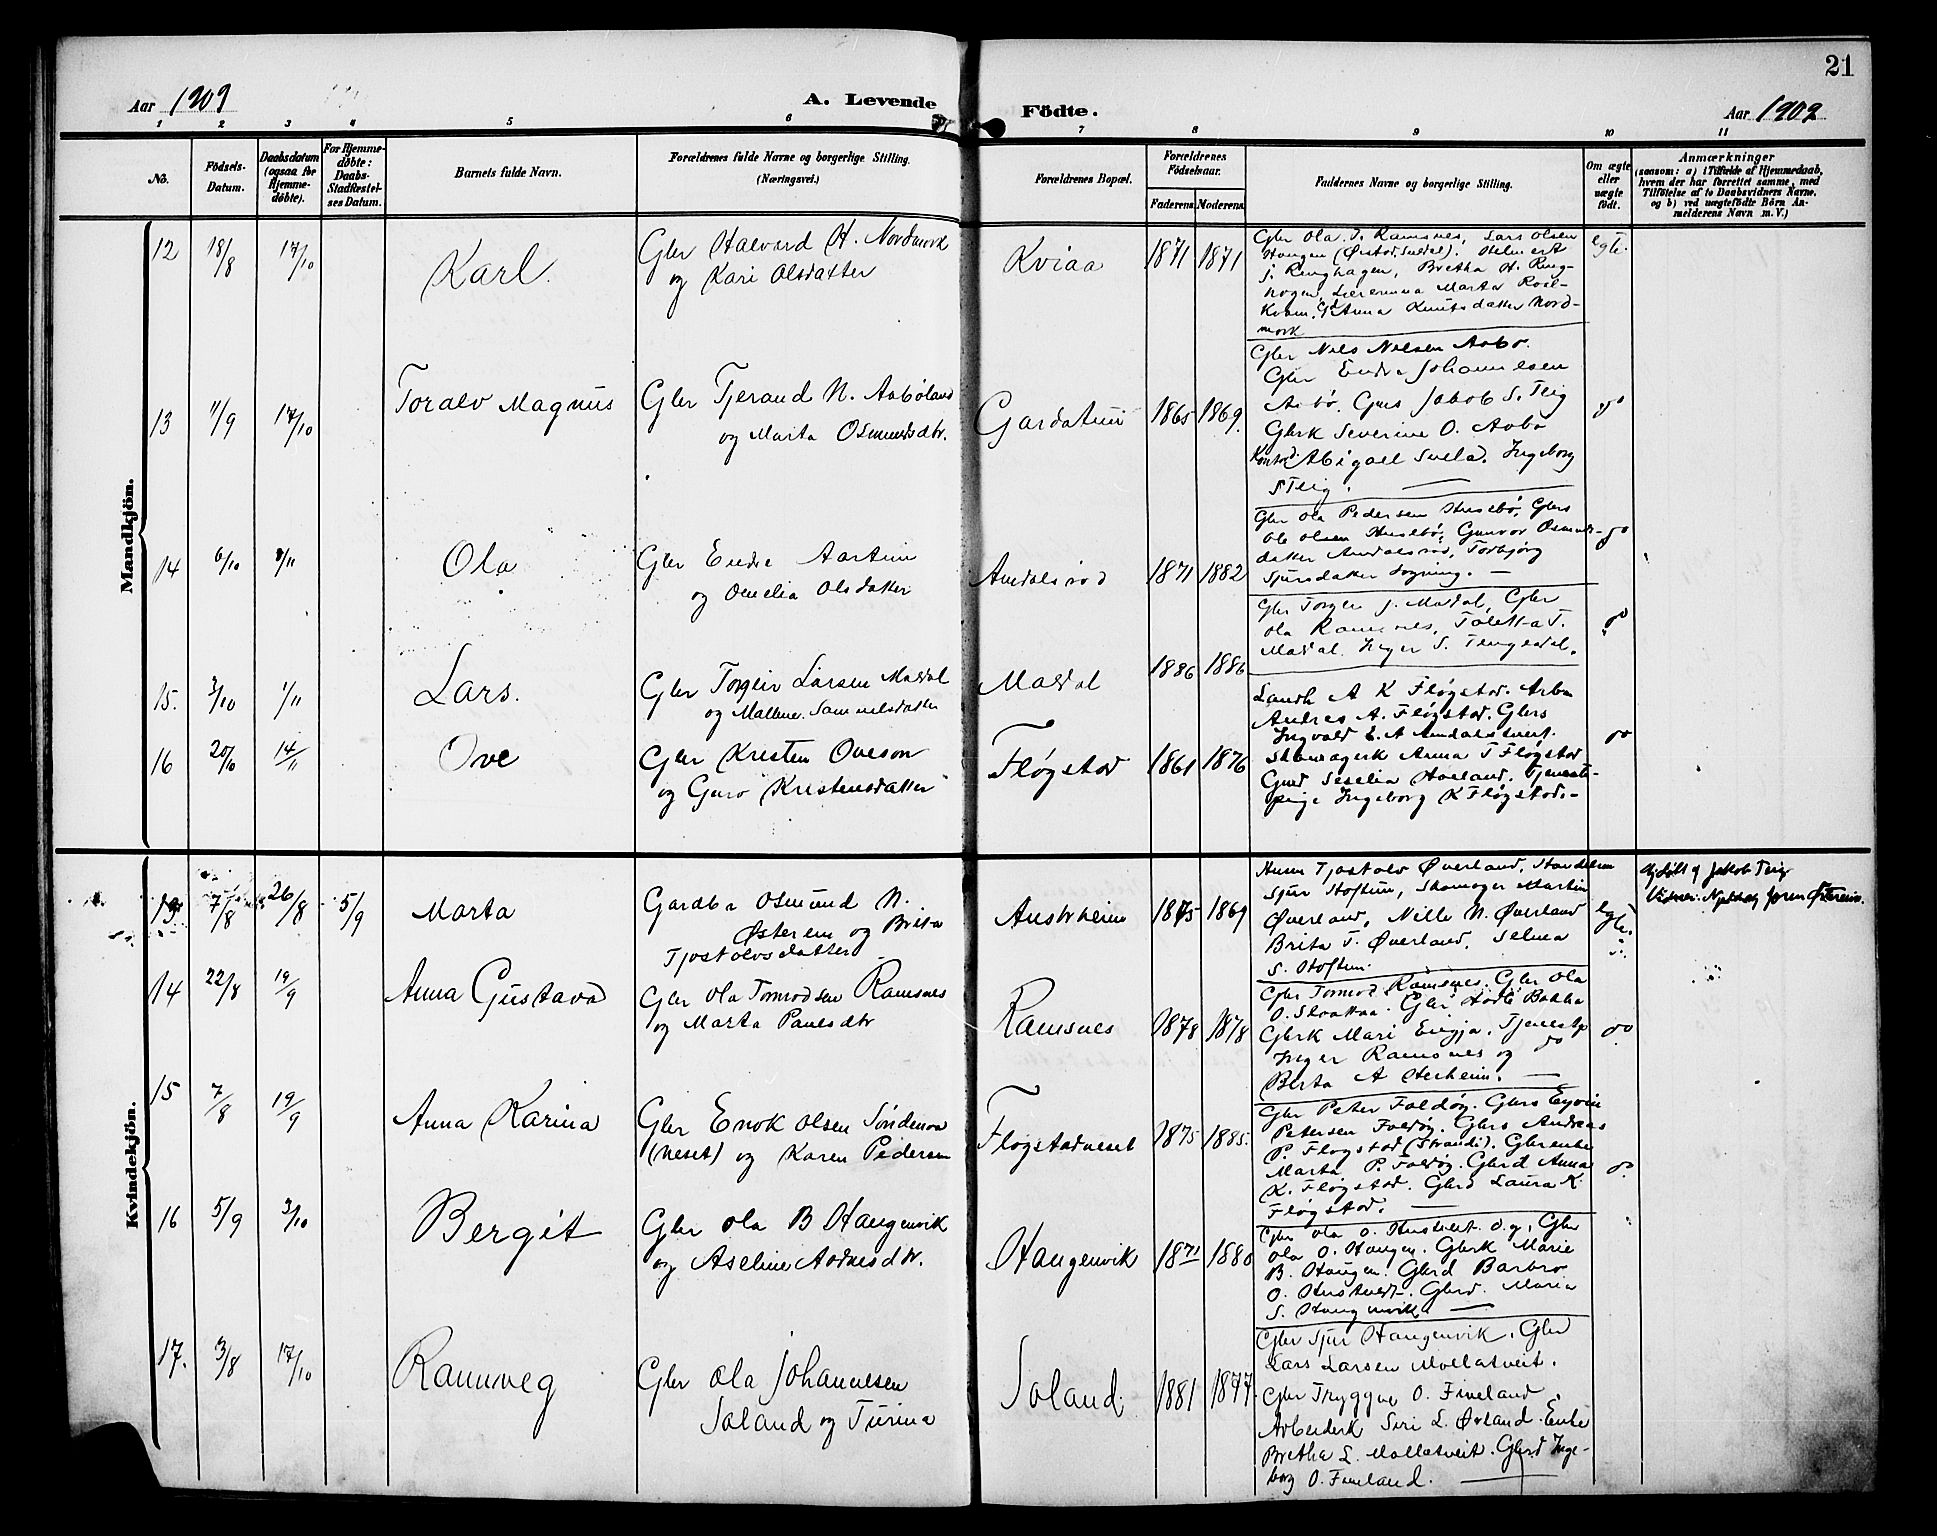 21
Aar 1909
A. Levende
Födte.
Aar 1909
1 2 3 4 5 6 7 8 9 10 11
No.
Födsels-
Datum.
Daabsdatum
(ogsaa for
Hjemme-
döbte).
For Hjemme-
döbte:
Daabs-
Stadfæstel-
ses Datum.
Barnets fulde Navn.
Forældrenes fulde Navne og borgerlige Stilling.
(Næringsvei.)
Forældrenes Bopæl.
Forældrenes
Födselsaar.
Faderens.
Moderens.
Faddernes Navne og borgerlige Stilling.
Om ægte
eller
uægte
födt.
Anmærkninger
(saasom: a) i Tilfælde af Hjemmedaab,
hvem der har forrettet samme, med
Tilföielse af to Daabsvidners Navne,
og b) ved uægtefödte Börn An-
melderens Navn m. V.)
Mandkjön.
12 18/8 17/10
Karl.
Gbr Halvard H. Nordmork
og Kari Olsdatter
Kviaa
1871 1871
Gbr Ola T. Ramsnes, Lars Olsen
Haugen
J. Ringhagen, Bretha H. Ring-
hagen, Lærerinna Marta Roal-
kvam, Anna Knutsdatter Nord-
mork
egte.
13 11/9 17/10
Toralv Magnus
Gbr Tjerand N. Aabøland
og Marta Osmundsdtr.
Gardatun
1865 1869.
Gbr Nils Nilsen Aabø.
Gbr Endre Johannesen
Aabø. Gbrs Jakob S. Teig
Gbrk Severine O. Aabø
Abigael Svela. Ingeborg
S Teig.
do
14 6/10 1/11
Ola
Gbr Endre Aartun
og Omelia Olsdatter
Amdalsrød
1871 1882
Gbr Ola Pedersen Husebø, Gbrs
Ole Olsen Husebø, Gunvor Osmunds-
datter Amdalsrød, Torbjørg
Sjursdatter Løgning.
do
15. 3/10 1/11
Lars.
Gbr Torgeir Larsen Maldal
og Malene Samuelsdatter
Maldal
1886 1886
Gbr Torger J. Maldal, Gbr
Ola Ramsnes, Toletta T.
Maldal. Inger S. Tengesdal.
do
16 20/10 14/11
Ove
Gbr Kristen Oveson
og Guro Kristensdatter
Fløgstad
1861 1876
Landh A K Fløgstad. Arbm
Andres A. Fløgstad. Gbrs
Ingvald E. A Amdalstveit.
Skomagerk Anna T Fløgstad
Gmd Seselia Hoeland. Tjeneste-
pige Ingeborg K Fløgstad.
do
Kvindekjön.
13 7/8 26/8 5/9
Marta
Gardbr Osmund N.
Østerem og Brita
Tjostolvsdatter
Austrheim
1875 1869
Husm Tjostolv Øverland, Handelsm
Sjur Hoftun, Skomager Martin
Øverland, Nille N. Øverland
Brita T. Øverland, Selma
S. Hoftun.
egte.
Hjdøbt af Jakob Teig
14 22/8 19/9
Anna Gustava
Gbr Ola Tormodsen Ramsnes
og Marta Paulsdtr
Ramsnes
1878 1878
Gbr Tormod Ramsnes. Gbr Ola
O. Slvattaa. Gbr Bakka
Gbrk Mari Engja. Tjenestp
Inger Ramsnes og do
Berta A Herheim.
do
15 7/8 19/9
Anna Karina
Gbr Enok Olsen Søndenaa
(Neset) og Karen Pedersen
Fløgstadneset
1875 1885.
Gbr Peter Foldøy. Gbrs Eyvin
Petersen Foldøy. Gbrs Andreas
P. Fløgstad (Strandi). Gbrenke
Marta P. Foldøy. Gbrd Anna
K. Fløgstad. Gbrd Laura K
Fløgstad.
do
16 5/9 3/10
Bergit
Gbr Ola B Haugenvik
og Aseline Aadnesdtr.
Haugenvik
1871 1880
Gbr Ola O. Hustveit d.y., Gbr
Ola O. Haugen. Gbrk Marie
B. Haugen. Gbrd Barbro
O. Hustveit. Gbrd. Maria
S. Haugenvik
17. 3/8 17/10
Rannveg
Gbr Ola Johannesen
Soland og Turina
Soland
1881 1877.
Gbr Sjur Haugenvik. Gbr
Lars Larsen Mollatveit.
Gbr Tryggve O. Fineland.
Arbeiderk Siri L. Øvland. Enke
Bretha L. Mollatveit. Gbrd Inge-
borg O. Fineland.